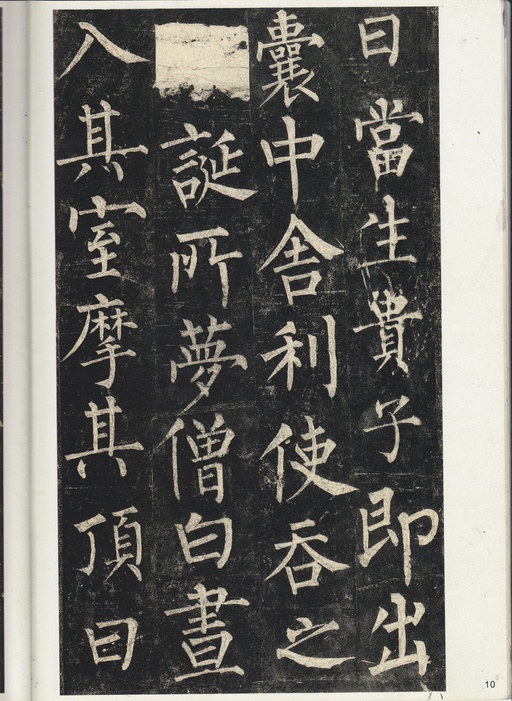 曰當生貴子即出
囊中舍利使吞之
誕所夢僧白晝
入其室摩其頂曰
10